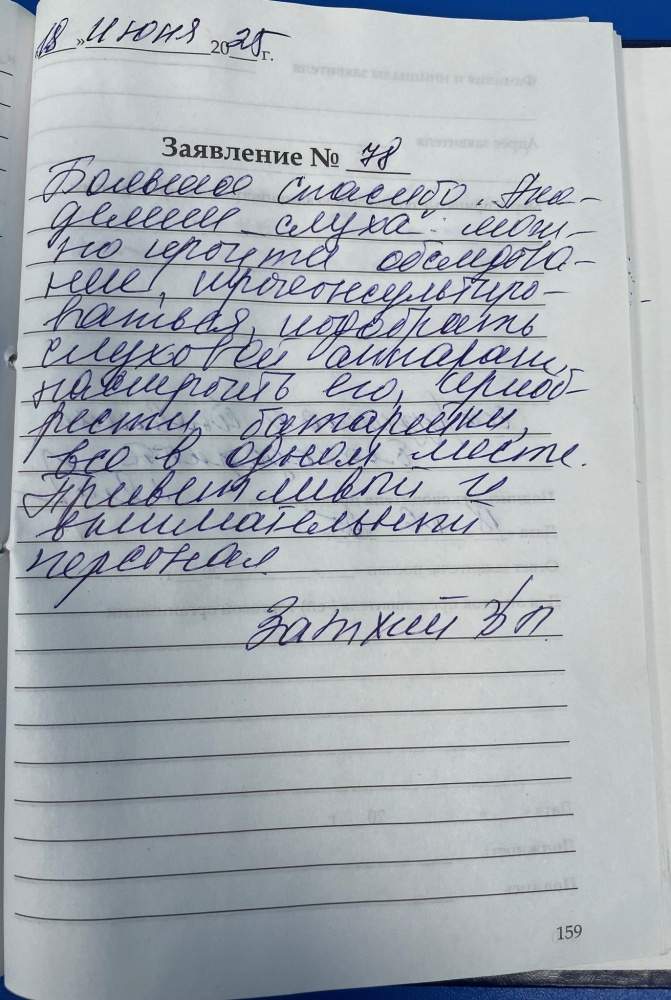 «18» июня 2025 г.
Заявление № 78
Большое спасибо. Ака-
демии слуха: мож-
но пройти обследова-
ние, проконсультиро-
ваться, подобрать
слуховой аппарат,
настроить его, приоб-
рести батарейки,
всё в одном месте.
Приветливый и
внимательный
персонал
159